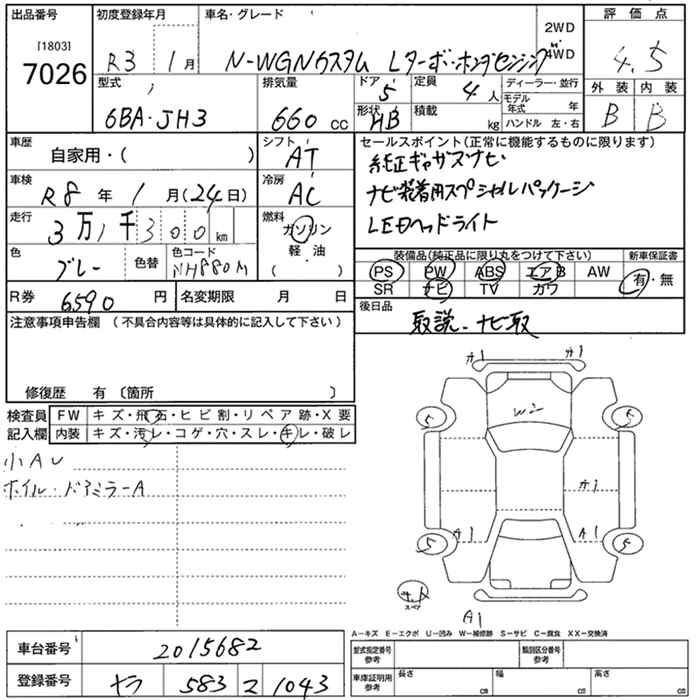 出品番号
[1803]
7026
初度登録年月
R3 年 1月
車名・グレード
N-WGNカスタム Lターボ・ホンダセンシング
2WD
4WD
評価点
4.5
外装 内装
B B
型式
6BA-JH3
排気量
660 cc
ドア
5
定員
4人
形状
HB
積載
kg
ディーラー・並行
モデル年式 年
ハンドル 左・右
車歴
自家用・( )
シフト
AT
車検
R8 年 1月(24日)
冷房
AC
走行
3万1千300 km
燃料
ガソリン
軽・油
( )
色
グレー
色替
色コード
NH880M
R券 6590 円
名変期限 月 日
セールスポイント(正常に機能するものに限ります)
純正ギャザズナビ
ナビ装着用スペシャルパッケージ
LEDヘッドライト
装備品(純正品に限り丸をつけて下さい)
新車保証書
PS PW ABS エアB AW
SR ナビ TV カワ
有・無
後日品
取説、ナビ取
注意事項申告欄 (不具合内容等は具体的に記入して下さい)
修復歴 有 〔箇所 〕
検査員
記入欄
FW キズ・飛石・ヒビ割・リペア跡・X要
内装 キズ・汚レ・コゲ・穴・スレ・キレ・破レ
小AU
ホイル・ドアミラーA
A1 A1
W2
5 5
A1
A1 A1
5 5
スペア
A1
A−キズ E−エクボ U−凹み W−補修跡 S−サビ C−腐食 XX−交換済
車台番号 2015682
登録番号 583 1043
型式指定番号 参考
類別区分番号 参考
車庫証明用 参考
長さ cm
幅 cm
高さ cm